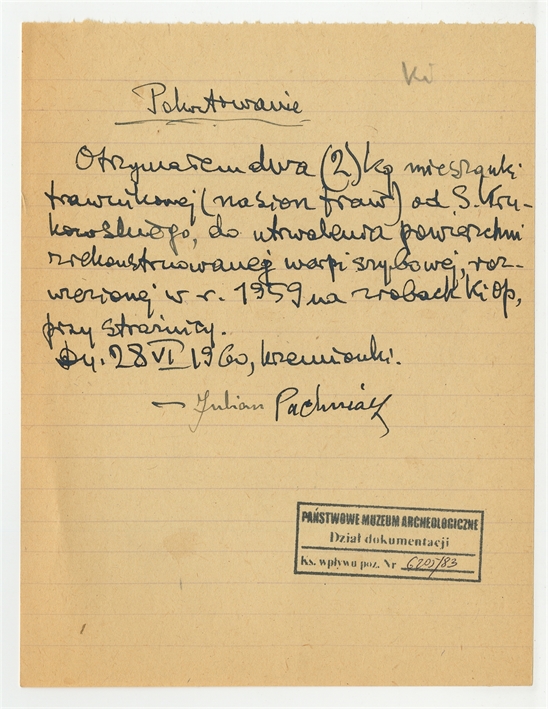 Ki
Pokwitowanie
Otrzymałem dwa (2) kg mieszanki
trawnikowej (nasion traw) od S. Kru-
kowskiego, do utrwalenia powierzchni
zrekonstruowanej warpi szybowej, roz-
wiezionej w r. 1959 na zrobach Ki Op,
przy strażnicy.
Dn. 28 VI 1960, Krzemionki.
— Julian Pachniak
PAŃSTWOWE MUZEUM ARCHEOLOGICZNE
Dział dokumentacji
Ks. wpływu poz. Nr 6205/83
1